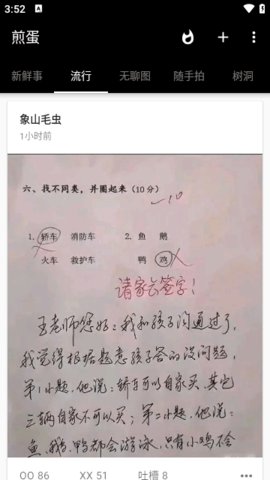 3:52
煎蛋
新鲜事 流行 无聊图 随手拍 树洞
象山毛虫
1小时前
六、找不同类，并圈起来（10分） -10
1. 轿车 消防车 2. 鱼 鹅
火车 救护车 鸭 鸡
请家长签字！
王老师您好：我和孩子沟通过了，
我觉得根据题意孩子答的没问题，
第1小题，他说：轿车可以自家买，其它
三辆自家不可以买；第二小题，他说：
鱼、鹅、鸭都会游泳，只有小鸡不会
OO 86 XX 51 吐槽 8